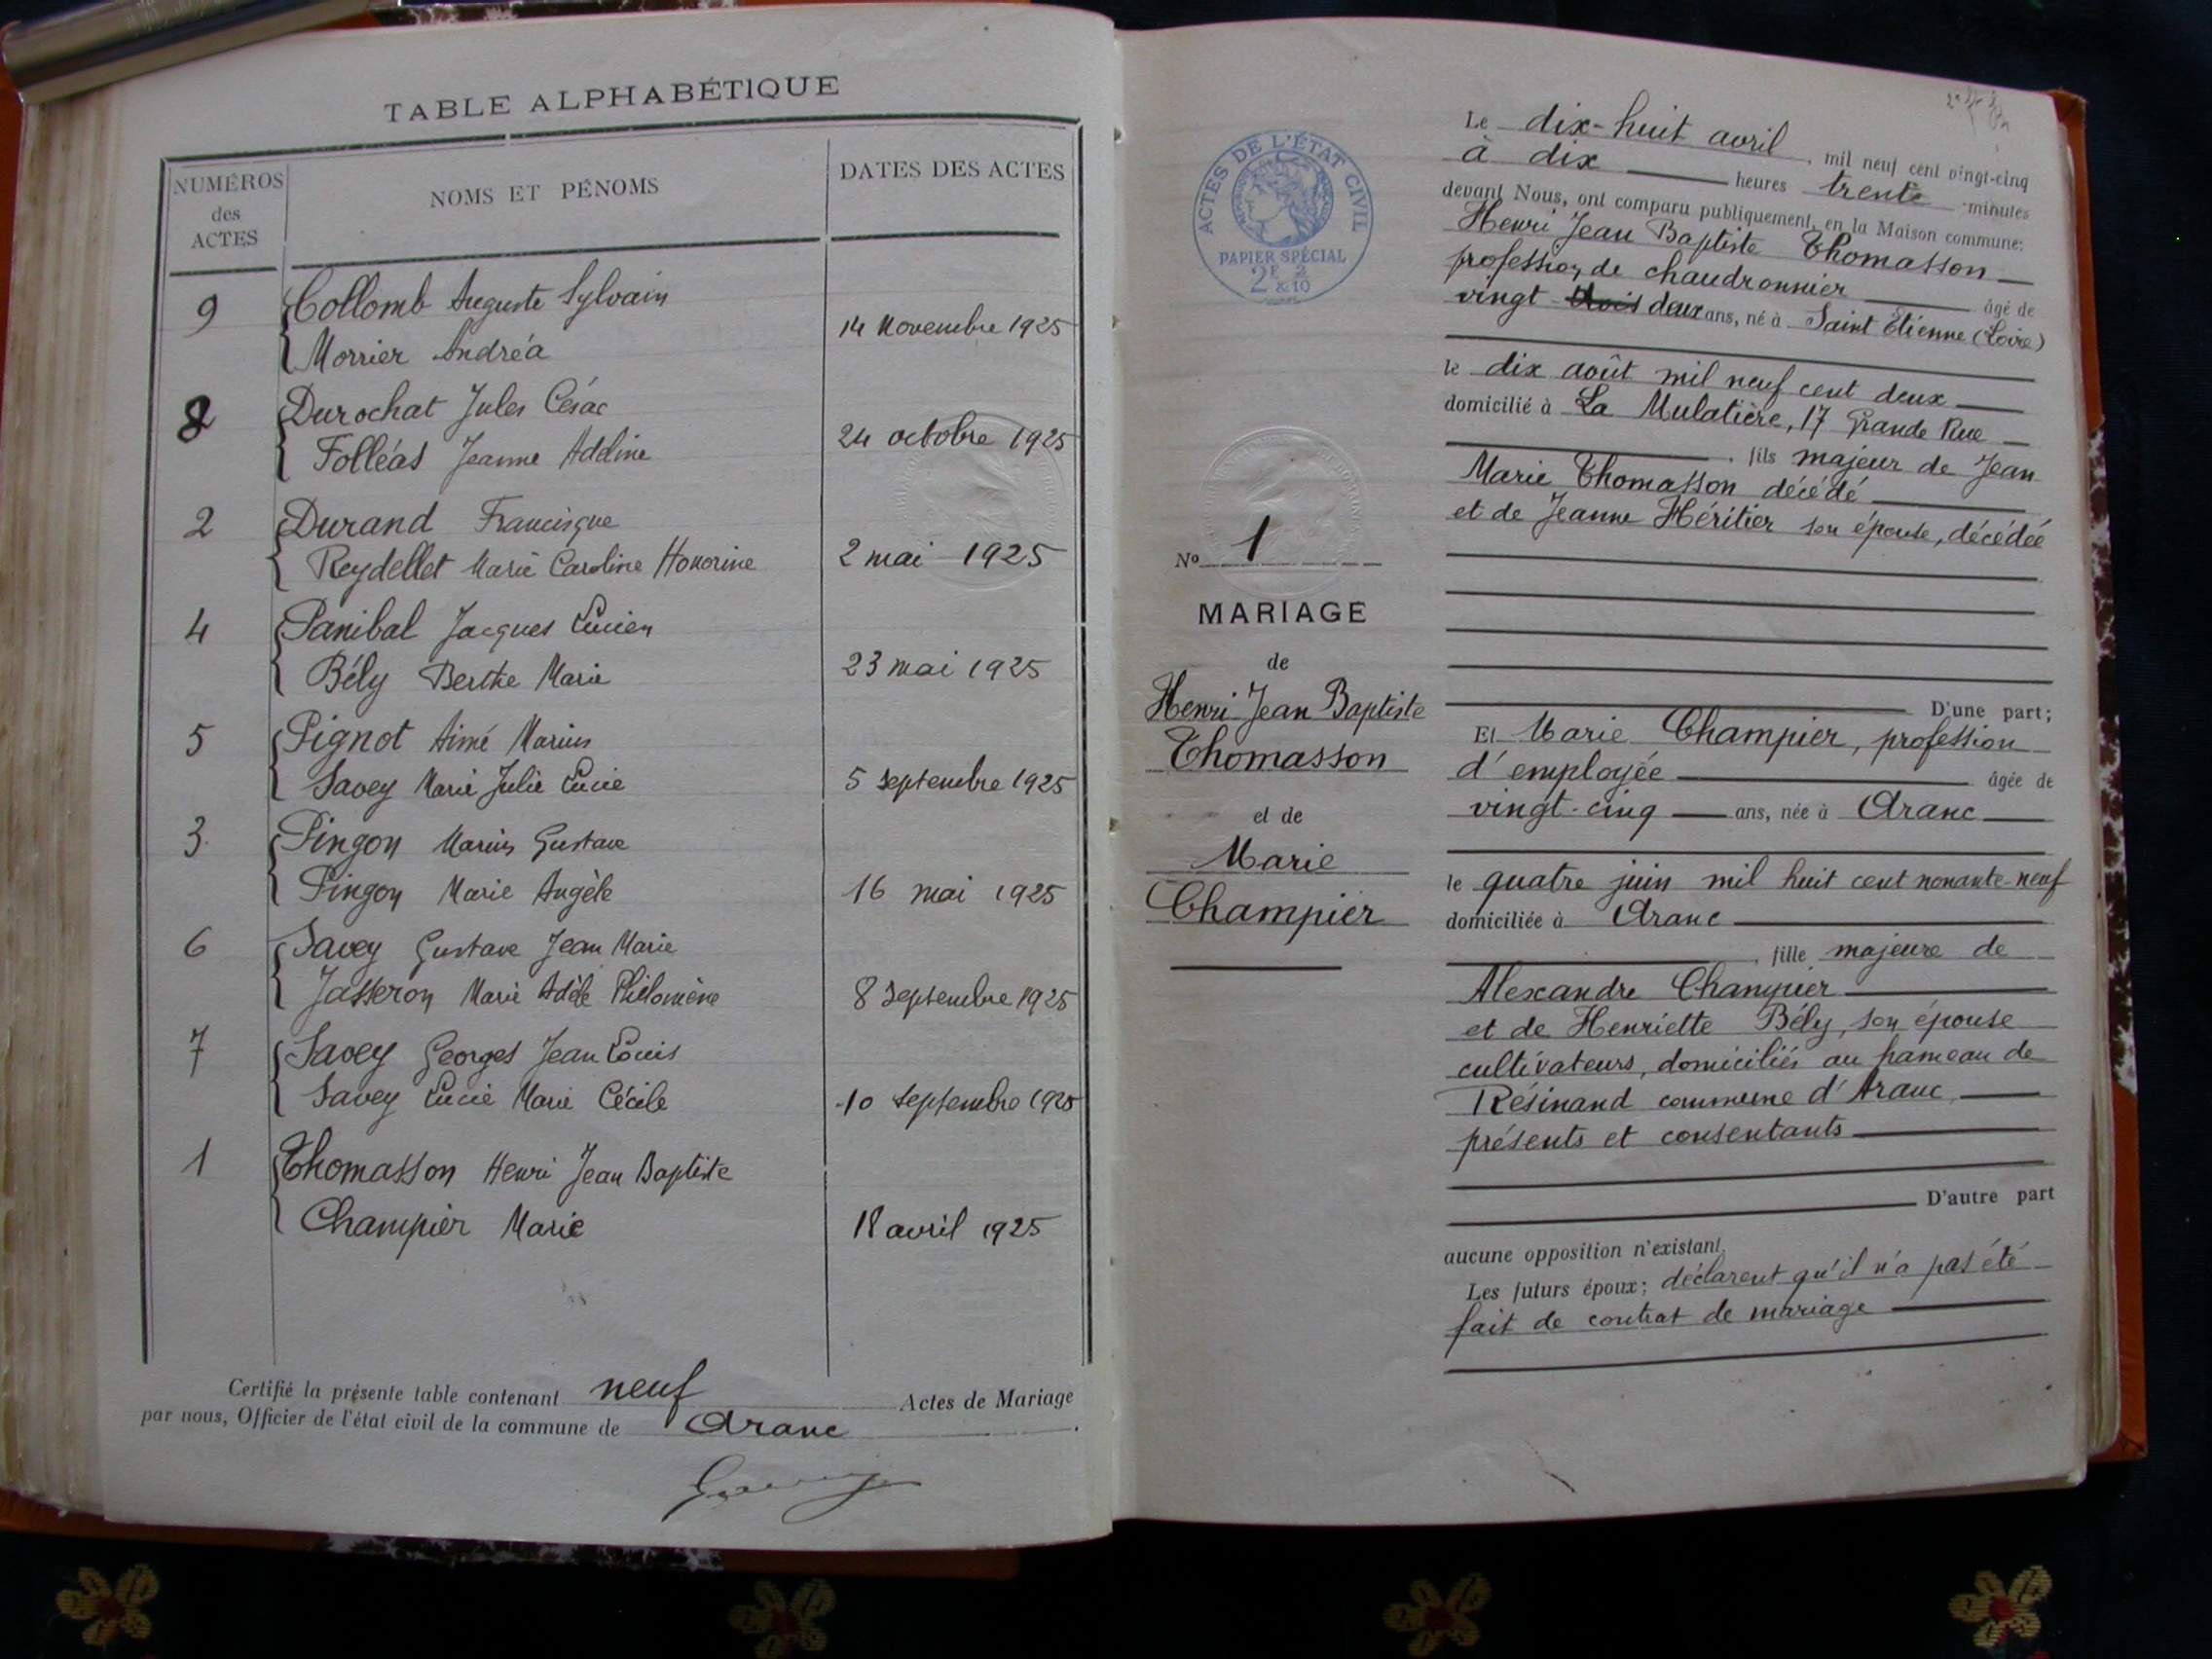 TABLE ALPHABÉTIQUE
NUMÉROS des ACTES
NOMS ET PÉNOMS
DATES DES ACTES
9 Collomb Auguste Sylvain
Morrier Andréa 14 Novembre 1925
8 Durochat Jules César
Folléas Jeanne Adeline 24 octobre 1925
2 Durand Francisque
Reydellet Marie Caroline Honorine 2 mai 1925
4 Panibal Jacques Lucien
Bély Berthe Marie 23 mai 1925
5 Pignot Aimé Marius
Savey Marie Julie Lucie 5 septembre 1925
3 Pingon Marius Gustave
Pingon Marie Angèle 16 mai 1925
6 Savey Gustave Jean Marie
Jasseron Marie Adèle Philomène 8 Septembre 1925
7 Savey Georges Jean Louis
Savey Lucie Marie Cécile 10 septembre 1925
1 Thomasson Henri Jean Baptiste
Champier Marie 18 avril 1925
Certifié la présente table contenant neuf Actes de Mariage
par nous, Officier de l'état civil de la commune de Aranc.
ACTES DE L'ÉTAT CIVIL
PAPIER SPÉCIAL
2F & 2/10
No 1
MARIAGE
de
Henri Jean Baptiste
Thomasson
et de
Marie
Champier
Le dix-huit avril, mil neuf cent vingt-cinq
à dix heures trente minutes
devant Nous, ont comparu publiquement, en la Maison commune:
Henri Jean Baptiste Thomasson
profession de chaudronnier âgé de
vingt-trois deux ans, né à Saint Etienne (Loire)
le dix août mil neuf cent deux
domicilié à La Mulatière, 17 Grande Rue
, fils majeur de Jean
Marie Thomasson décédé
et de Jeanne Héritier son épouse, décédée
D'une part;
Et Marie Champier, profession
d'employée âgée de
vingt-cinq ans, née à Aranc
le quatre juin mil huit cent nonante-neuf
domiciliée à Aranc
, fille majeure de
Alexandre Champier
et de Henriette Bély, son épouse
cultivateurs, domiciliés au hameau de
Résinand commune d'Aranc,
présents et consentants
D'autre part
aucune opposition n'existant
Les futurs époux; déclarent qu'il n'a pas été
fait de contrat de mariage